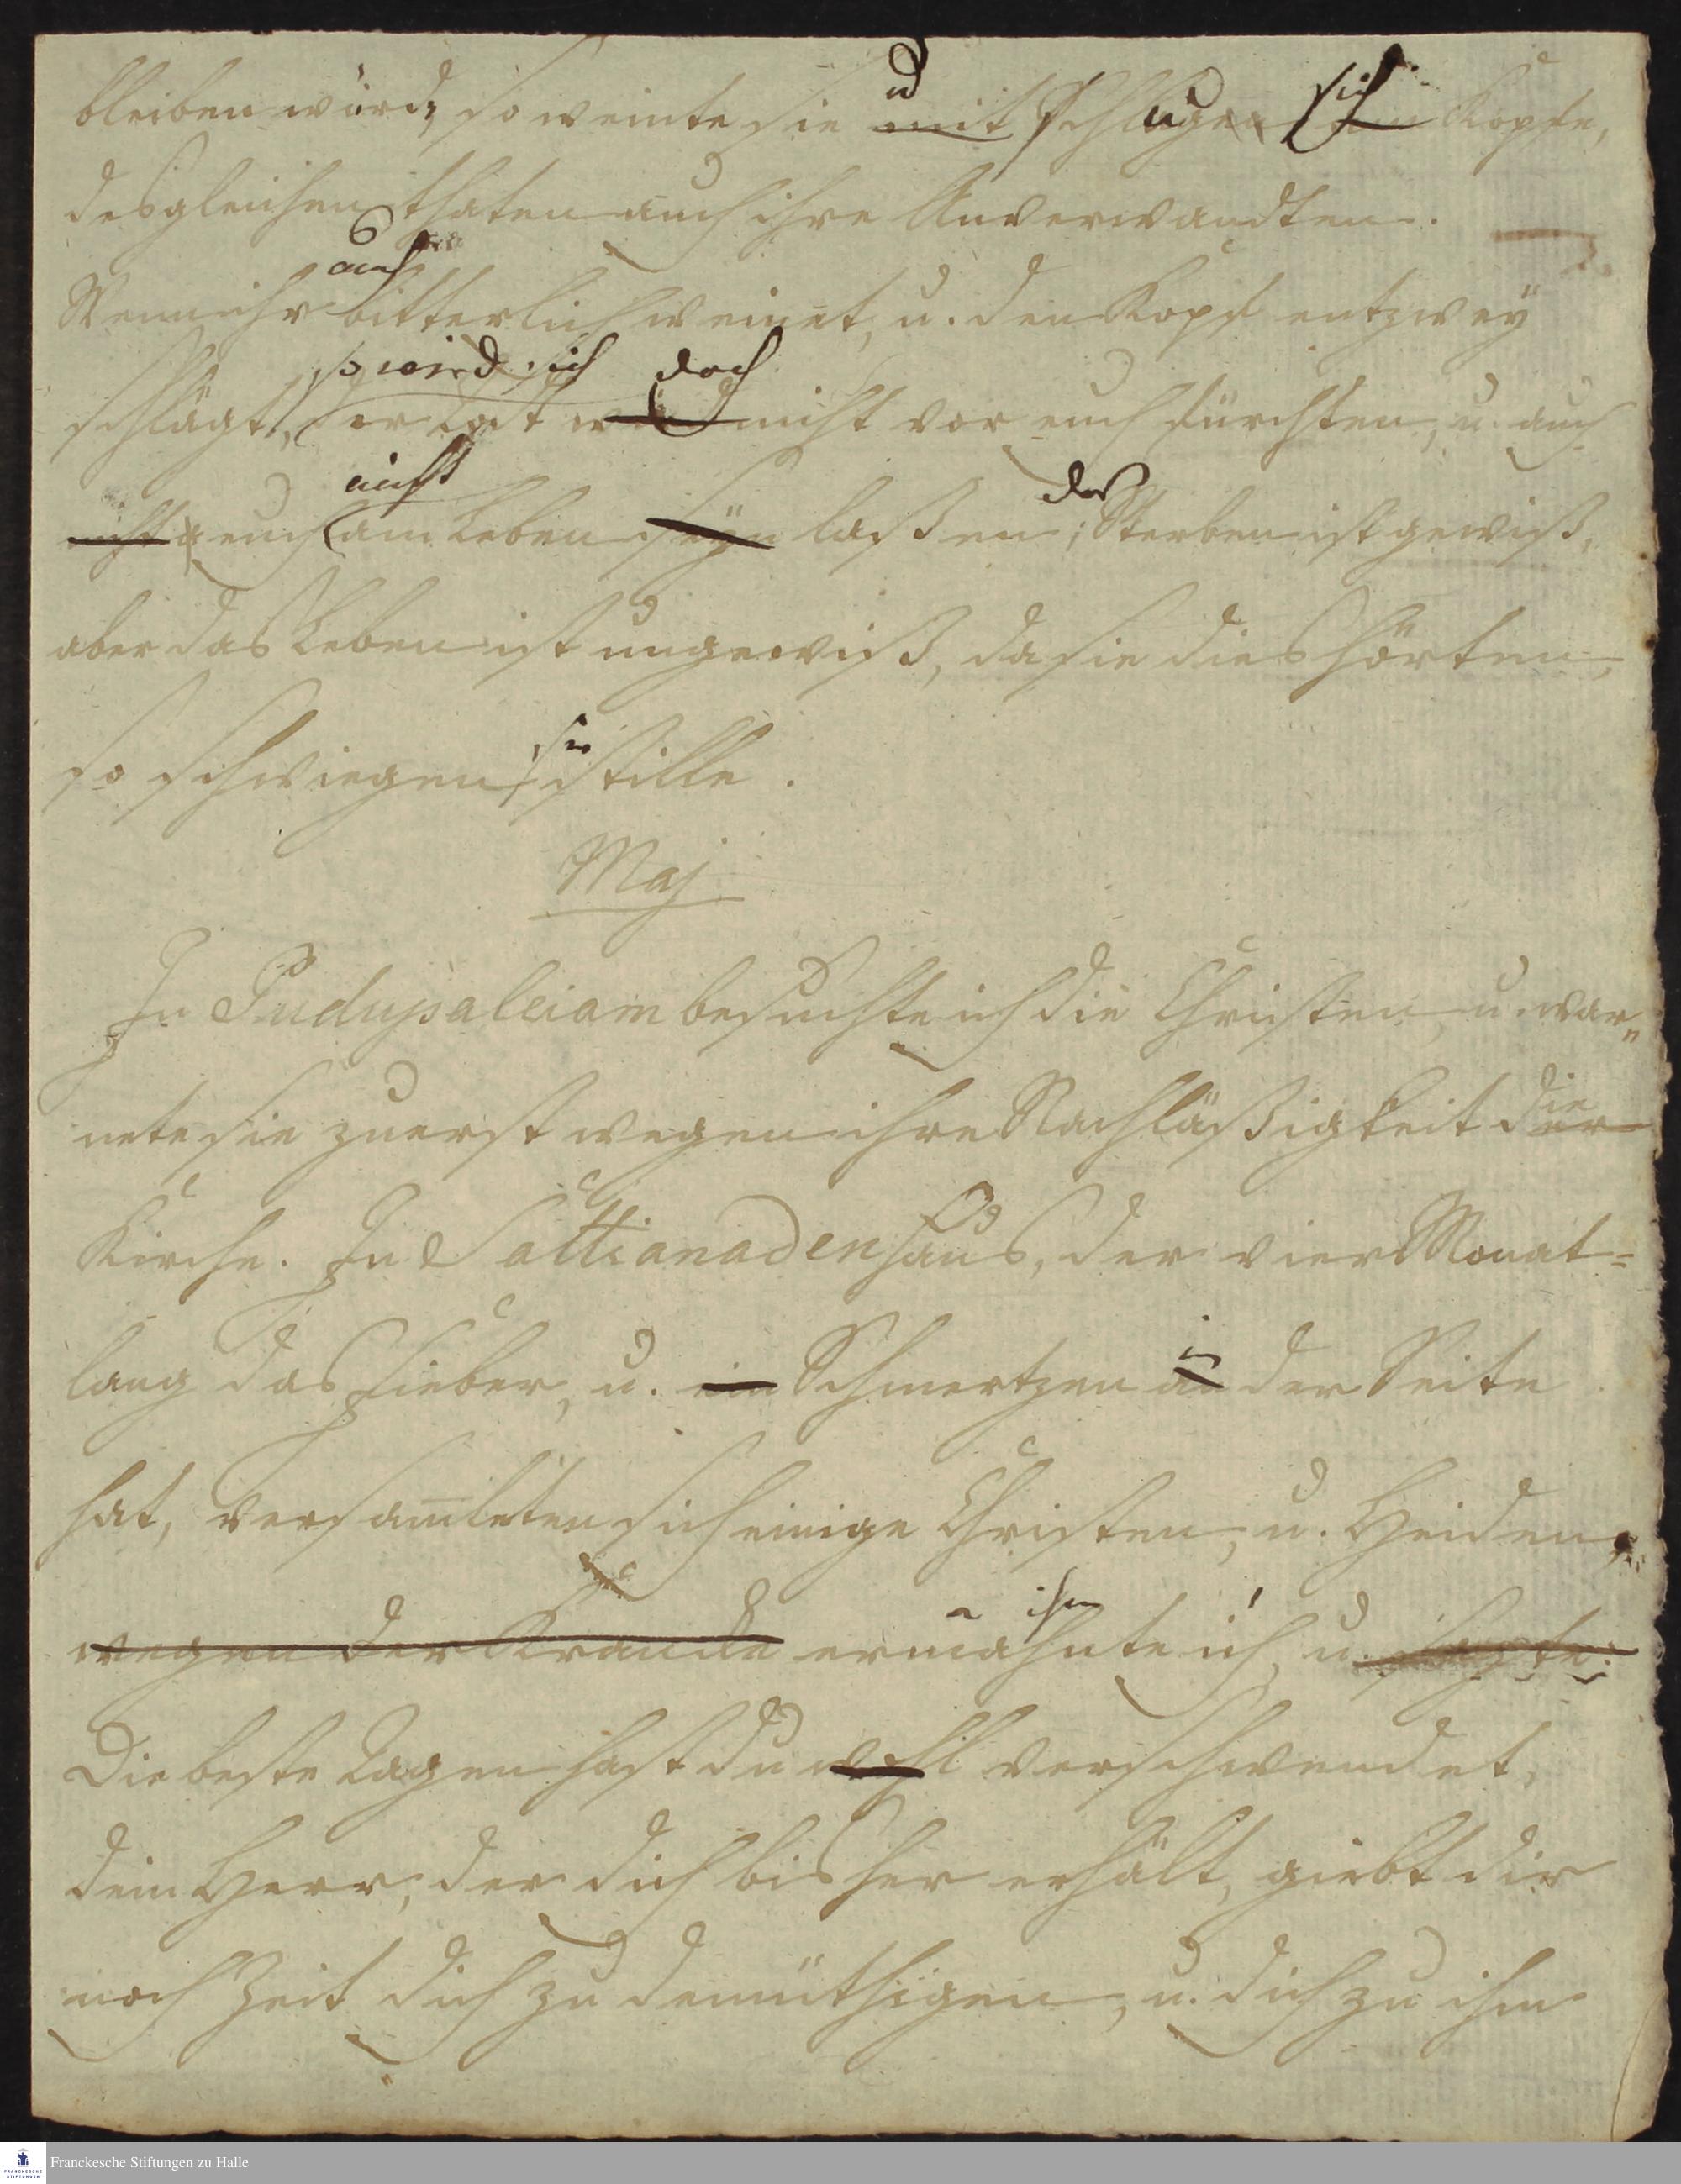 bleiben würde, so weinte sie mit ud schlugen sich am Kopfe,
desgleichen thaten auch ihre Anverwandten.
Wenn ihr auch bitterlich weinet, u. den Kopf entzwey
schlägt, so wird sich doch nicht vor euch fürchten, u. auch
nicht euch nicht am Leben seyn laßen; das Sterben ist gewiß,
aber das Leben ist ungewiß, da sie dies hörten,
so schwiegen sie stille.
Maj
In Pudupaleiam besuchte ich die Christen, u. war„
nete sie zuerst wegen ihre Nachläßigkeit die der
Kirche. In Sattianaden Haus, der vier Monat=
lang das Fieber, u. ein Schmertzen in an der Seite
hat, versam̄leten sich einige Christen, u. Heiden,
wegen der Krancke ermahnte ihn ich, u. sagte:
Die beste Tagen hast du wohl verschwendet,
dein Herr, der dich bisher erhält, giebt dir
noch Zeit dich zu demüthigen, u. dich zu ihm
Franckesche Stiftungen zu Halle
FRANCKESCHE
STIFTUNGEN